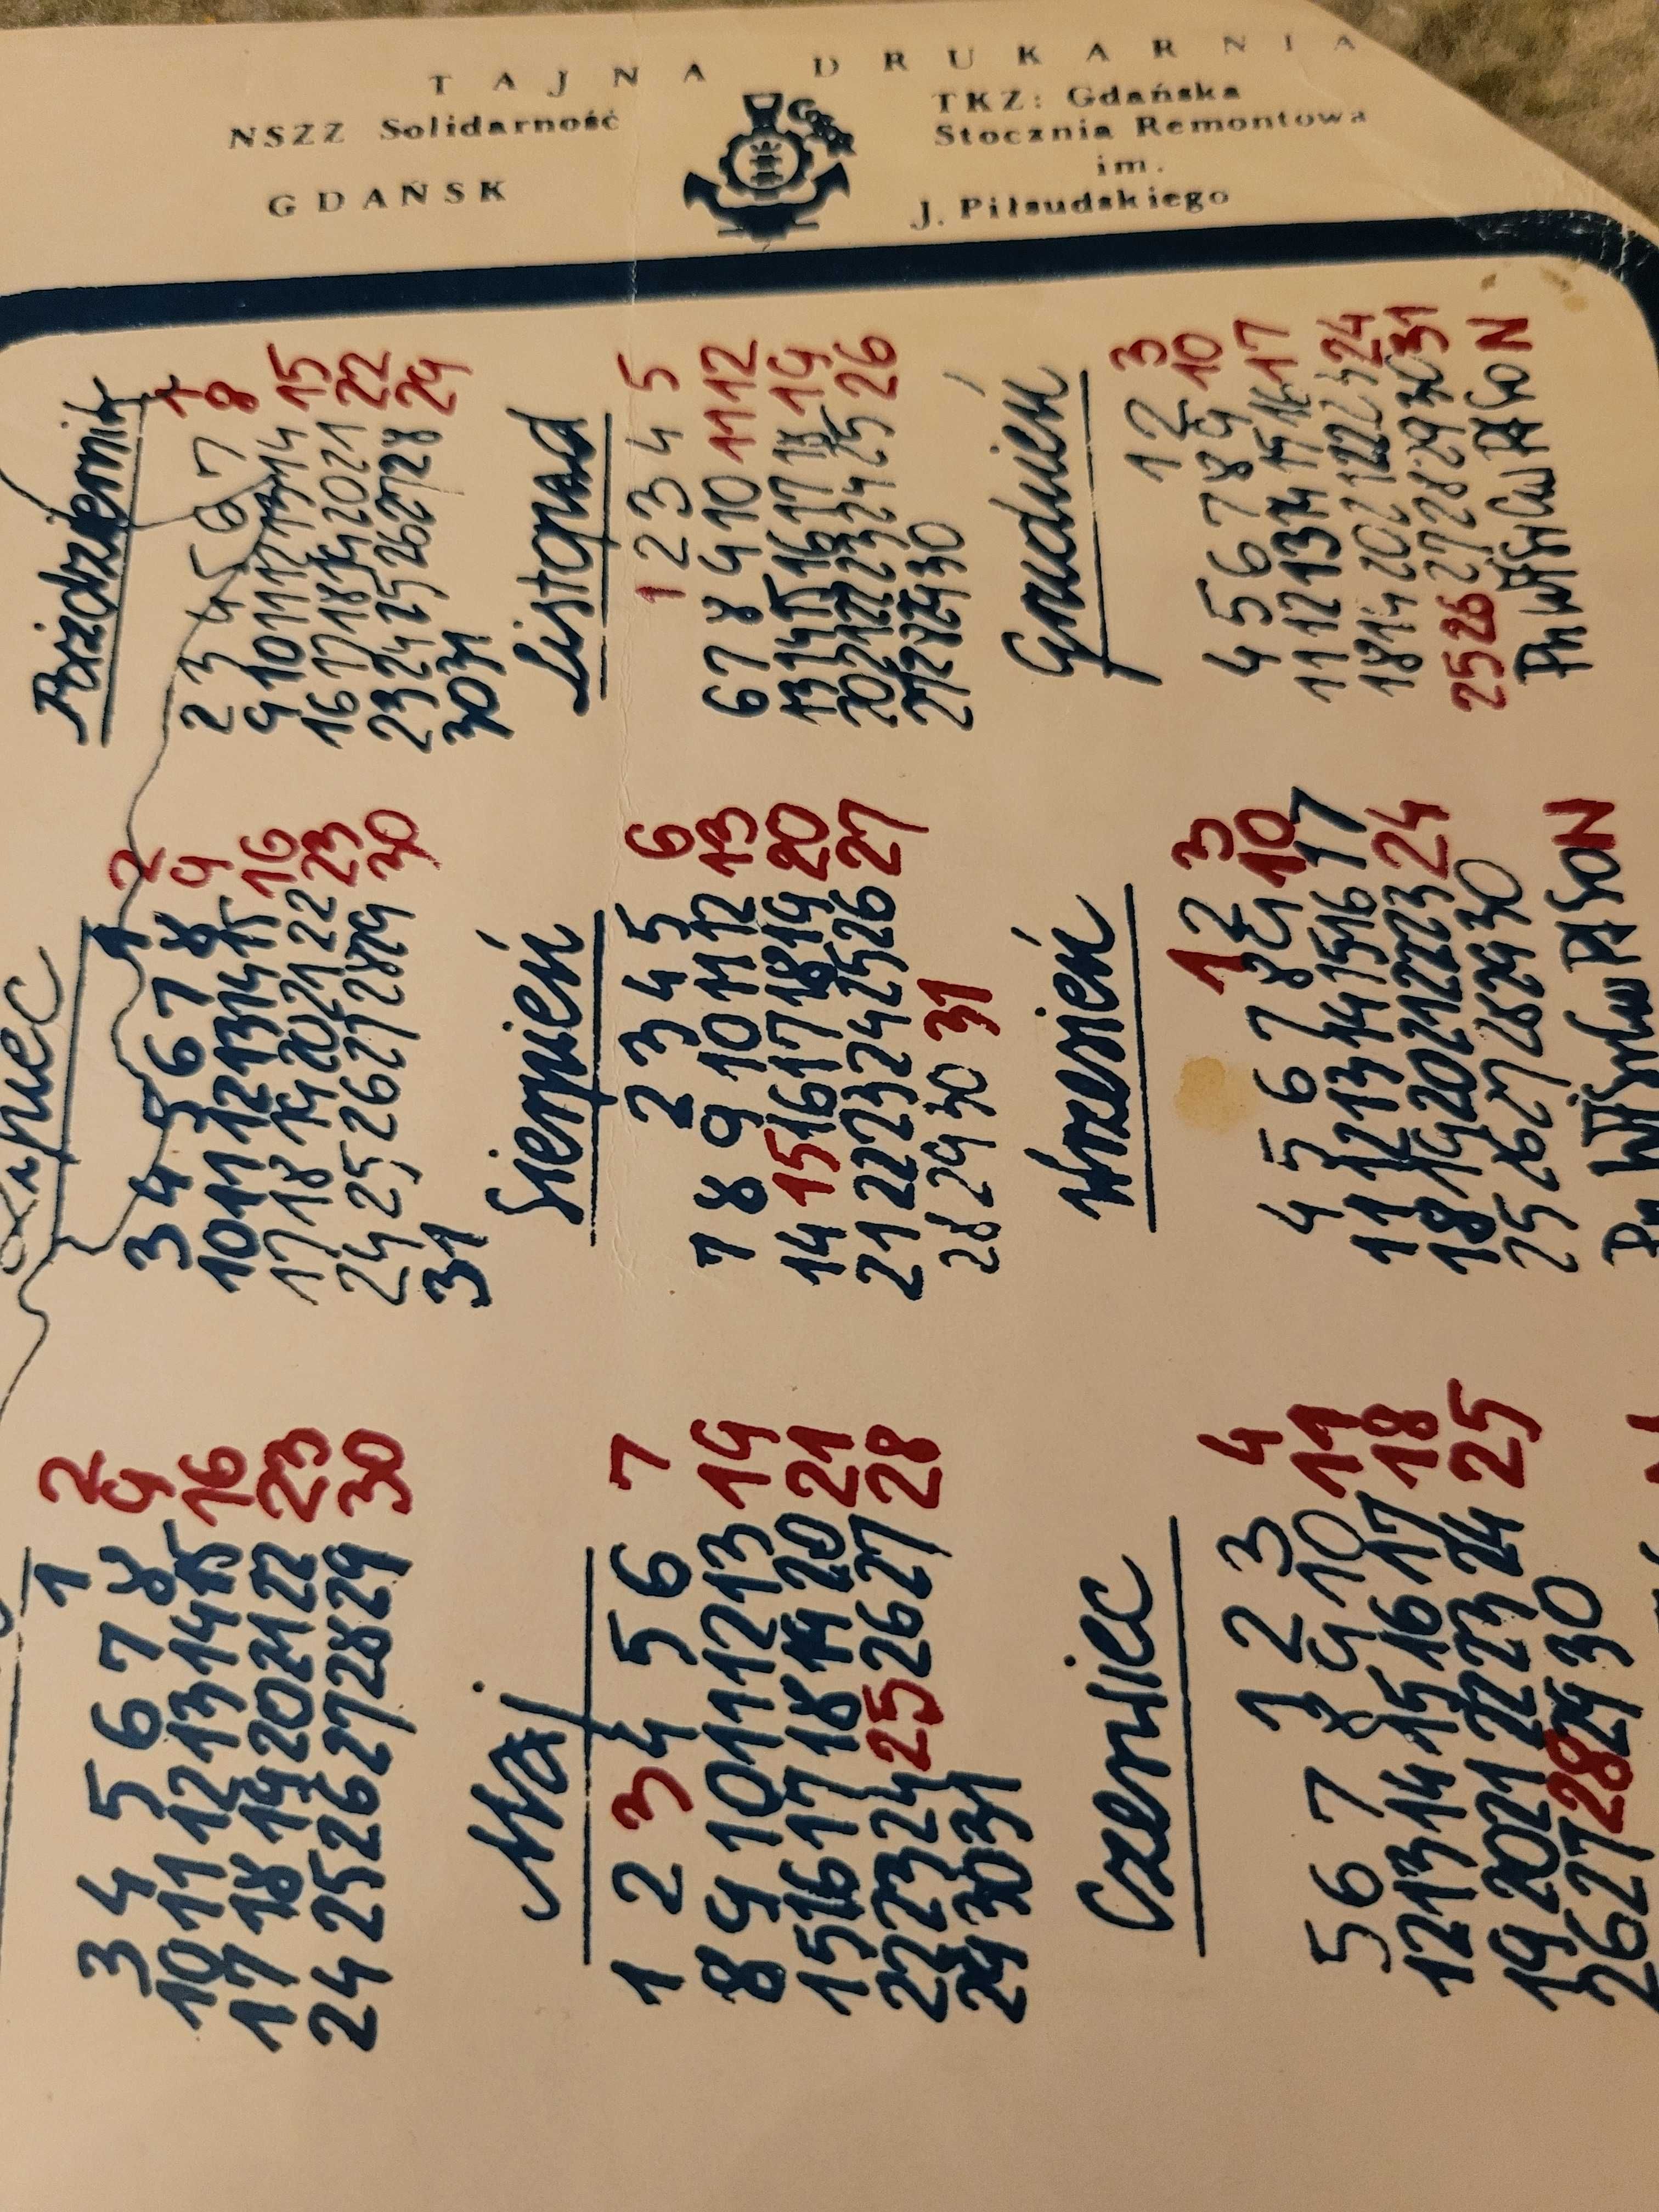 TAJNA DRUKARNIA
NSZZ Solidarność
GDAŃSK
TKZ: Gdańska
Stocznia Remontowa
im.
J. Piłsudskiego
1 2
3 4 5 6 7 8 9
10 11 12 13 14 15 16
17 18 19 20 21 22 23
24 25 26 27 28 29 30
Maj
1 2 3 4 5 6 7
8 9 10 11 12 13 14
15 16 17 18 19 20 21
22 23 24 25 26 27 28
29 30 31
Czerwiec
1 2 3 4
5 6 7 8 9 10 11
12 13 14 15 16 17 18
19 20 21 22 23 24 25
26 27 28 29 30
Lipiec
1 2
3 4 5 6 7 8 9
10 11 12 13 14 15 16
17 18 19 20 21 22 23
24 25 26 27 28 29 30
31
Sierpień
2 3 4 5 6
7 8 9 10 11 12 13
14 15 16 17 18 19 20
21 22 23 24 25 26 27
28 29 30 31
Wrzesień
1 2 3
4 5 6 7 8 9 10
11 12 13 14 15 16 17
18 19 20 21 22 23 24
25 26 27 28 29 30
Pn Wt Śr Cw Pt So N
Październik
1
2 3 4 5 6 7 8
9 10 11 12 13 14 15
16 17 18 19 20 21 22
23 24 25 26 27 28 29
30 31
Listopad
1 2 3 4 5
6 7 8 9 10 11 12
13 14 15 16 17 18 19
20 21 22 23 24 25 26
27 28 29 30
Grudzień
1 2 3
4 5 6 7 8 9 10
11 12 13 14 15 16 17
18 19 20 21 22 23 24
25 26 27 28 29 30 31
Pn Wt Śr Cw Pt So N